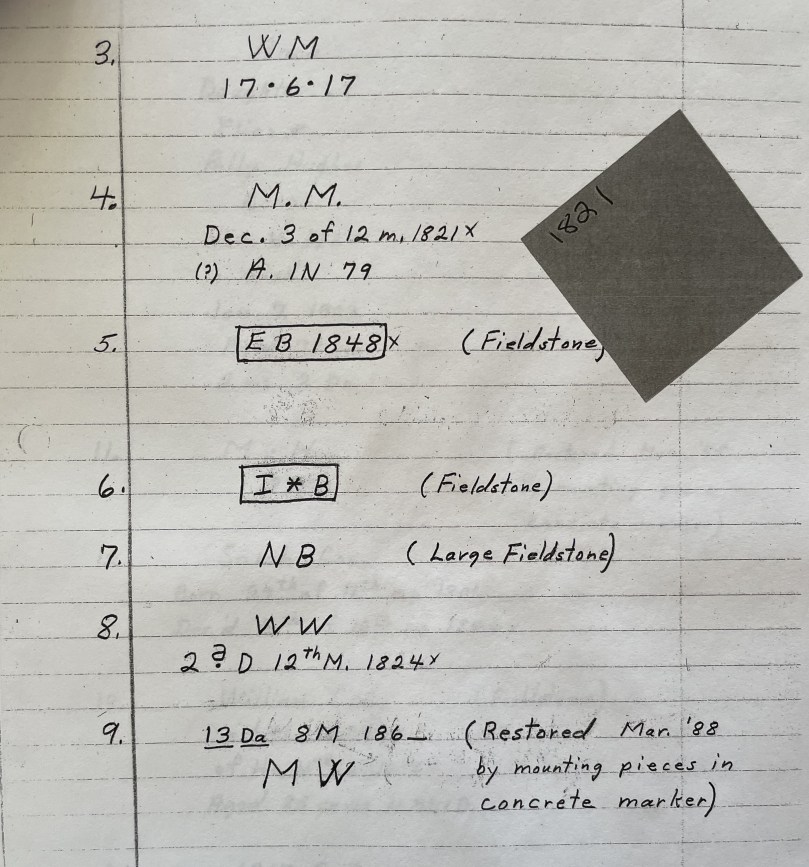 3. WM
17·6·17
4. M. M.
Dec. 3 of 12 m, 1821 x
(?) A. IN 79
1821
5. EB 1848 x (Fieldstone)
6. I * B (Fieldstone)
7. NB (Large Fieldstone)
8. WW
2 ? D 12th M. 1824 x
9. 13 Da 8M 186_ (Restored Mar. '88
MW by mounting pieces in
concrete marker)